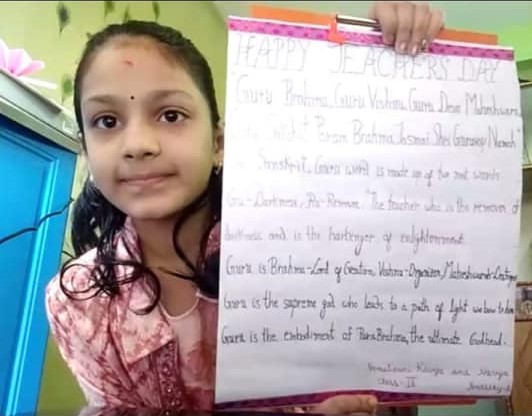 HAPPY TEACHERS DAY
"Guru Brahma, Guru Vishnu, Guru Devo Maheshwara,
Param Brahma, Tasmai Shri Guravey Namah"
Sanskrit, Guru word is made up of two root words-
Gu-Darkness, Ru-Remove. "The teacher who is the remover of
darkness and is the harbinger of enlightenment.
Guru is Brahma-Lord of Creation, Vishnu-Organizer, Maheshwarah-Destroyer
Guru is the supreme god who leads to a path of light we bow to him
Guru is the embodiment of Para Brahma, the ultimate Godhead.
Kavya and
Class-II Nursery-